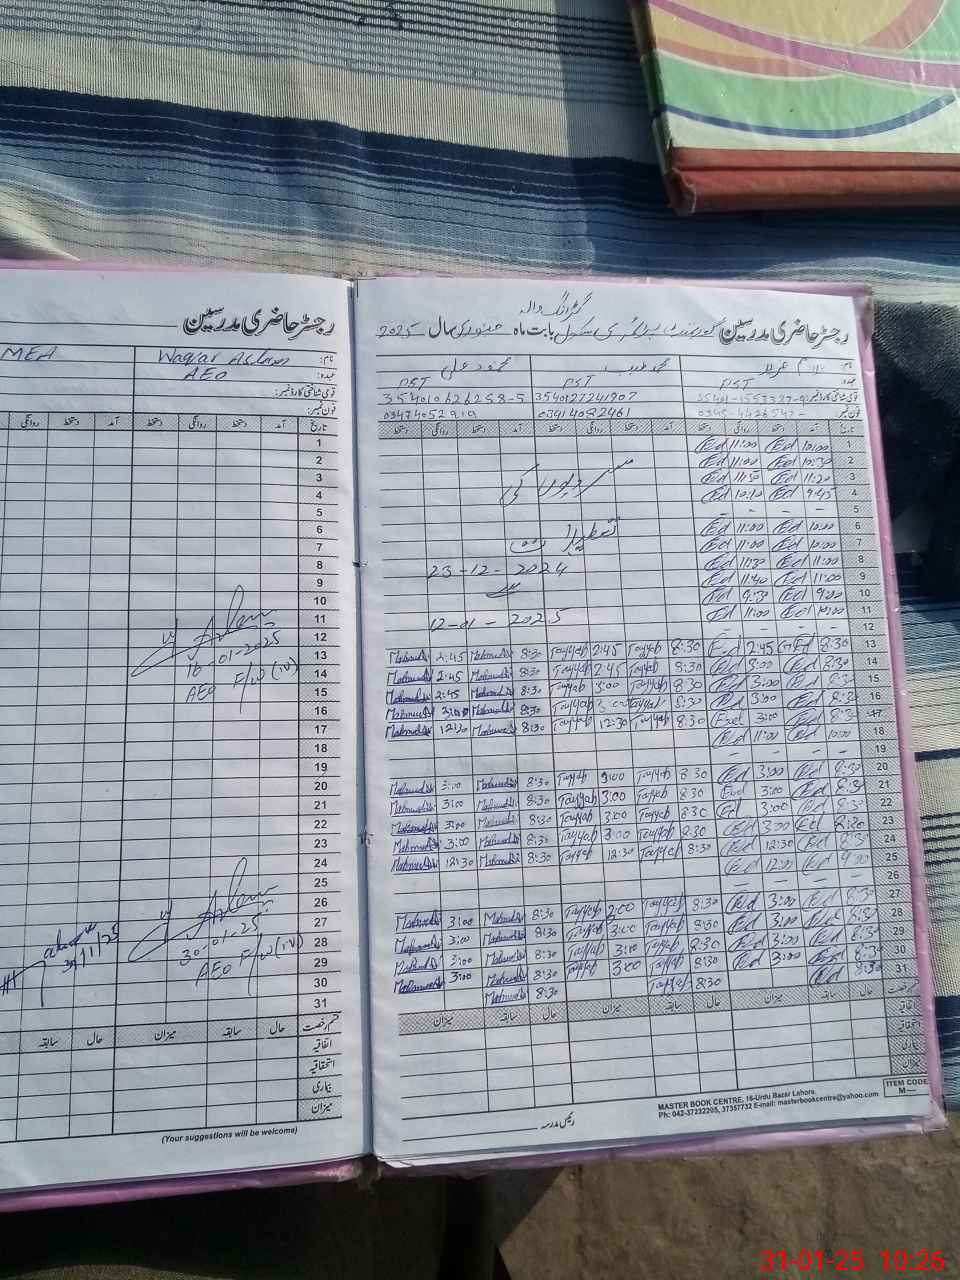 رجسٹر حاضری مدرسین
MEA
نام: Waqar Aslam
عہدہ: AEO
قومی شناختی کارڈ نمبر:
فون نمبر:
تاریخ آمد دستخط روانگی دستخط آمد دستخط روانگی
1
2
3
4
5
6
7
8
9
10
11
12
13
14
15
16
17
18
19
20
21
22
23
24
25
26
27
28
29
30
31
Aslam
16-01-2025
AEO F/W (IV)
Aslam
30-01-25
AEO F/W (IV)
قسم رخصت حال سابقہ میزان حال سابقہ
اتفاقیہ
استحقاقیہ
بیماری
میزان
(Your suggestions will be welcome)
رجسٹر حاضری مدرسین گورنمنٹ پرائمری سکول بابت ماہ جنوری سال 2025
نام: محمد طیب محمود علی
عہدہ: PST PST PST
قومی شناختی کارڈ نمبر: 3540127241907 354010626258-5
فون نمبر: 03474052919
تاریخ آمد دستخط روانگی دستخط آمد دستخط روانگی دستخط آمد دستخط روانگی دستخط
1 10:00 Ed 11:00 Ed
2 10:30 Ed 11:00 Ed
3 11:20 Ed 11:50 Ed
4 9:45 Ed 10:10 Ed
5 – – – –
6 10:00 Ed 11:00 Ed
7 10:00 Ed 11:00 Ed
8 11:00 Ed 11:30 Ed
9 11:00 Ed 11:40 Ed
10 9:00 Ed 9:30 Ed
11 10:00 Ed 11:00 Ed
12 – – – –
سردیوں کی
تعطیلات
23-12-2024
سے
12-01-2025
13 8:30 Ed 2:45 Ed 8:30 Tayyab 2:45 Tayyab 8:30 Mahmud 2:45 Mahmud
14 8:30 Ed 3:00 Ed 8:30 Tayyab 2:45 Tayyab 8:30 Mahmud 2:45 Mahmud
15 8:30 Ed 3:00 Ed 8:30 Tayyab 3:00 Tayyab 8:30 Mahmud 2:45 Mahmud
16 8:30 Ed 3:00 Ed Tayyab Tayyab 8:30 Mahmud 3:00 Mahmud
17 8:30 Ed 3:00 Ed 8:30 Tayyab 12:30 Tayyab 8:30 Mahmud 12:30 Mahmud
18 10:00 Ed 11:00 Ed
19 – – – –
20 8:30 Ed 3:00 Ed 8:30 Tayyab 3:00 Tayyab 8:30 Mahmud 3:00 Mahmud
21 8:30 Ed 3:00 Ed 8:30 Tayyab 3:00 Tayyab 8:30 Mahmud 3:00 Mahmud
22 8:30 Ed 3:00 Ed 8:30 Tayyab 3:00 Tayyab 8:30 Mahmud 3:00 Mahmud
23 8:30 Ed 3:00 Ed 8:30 Tayyab 3:00 Tayyab 8:30 Mahmud 3:00 Mahmud
24 8:30 Ed 12:30 Ed 8:30 Tayyab 12:30 Tayyab 8:30 Mahmud 12:30 Mahmud
25 9:00 Ed 12:00 Ed
26 – – – –
27 8:30 Ed 3:00 Ed 8:30 Tayyab 3:00 Tayyab 8:30 Mahmud 3:00 Mahmud
28 8:30 Ed 3:00 Ed 8:30 Tayyab 3:00 Tayyab 8:30 Mahmud 3:00 Mahmud
29 8:30 Ed 3:00 Ed 8:30 Tayyab 3:00 Tayyab 8:30 Mahmud 3:00 Mahmud
30 8:30 Ed 3:00 Ed 8:30 Tayyab 3:00 Tayyab 8:30 Mahmud 3:00 Mahmud
31 8:30 Ed 8:30 Tayyab 8:30 Mahmud
قسم رخصت حال سابقہ میزان حال سابقہ میزان حال سابقہ میزان
اتفاقیہ
استحقاقیہ
بیماری
میزان
رئیس مدرسہ
MASTER BOOK CENTRE, 16-Urdu Bazar Lahore
Ph: 042-37232205, 37357732 E-mail: masterbookcentre@yahoo.com
ITEM CODE
M—
31-01-25 10:26